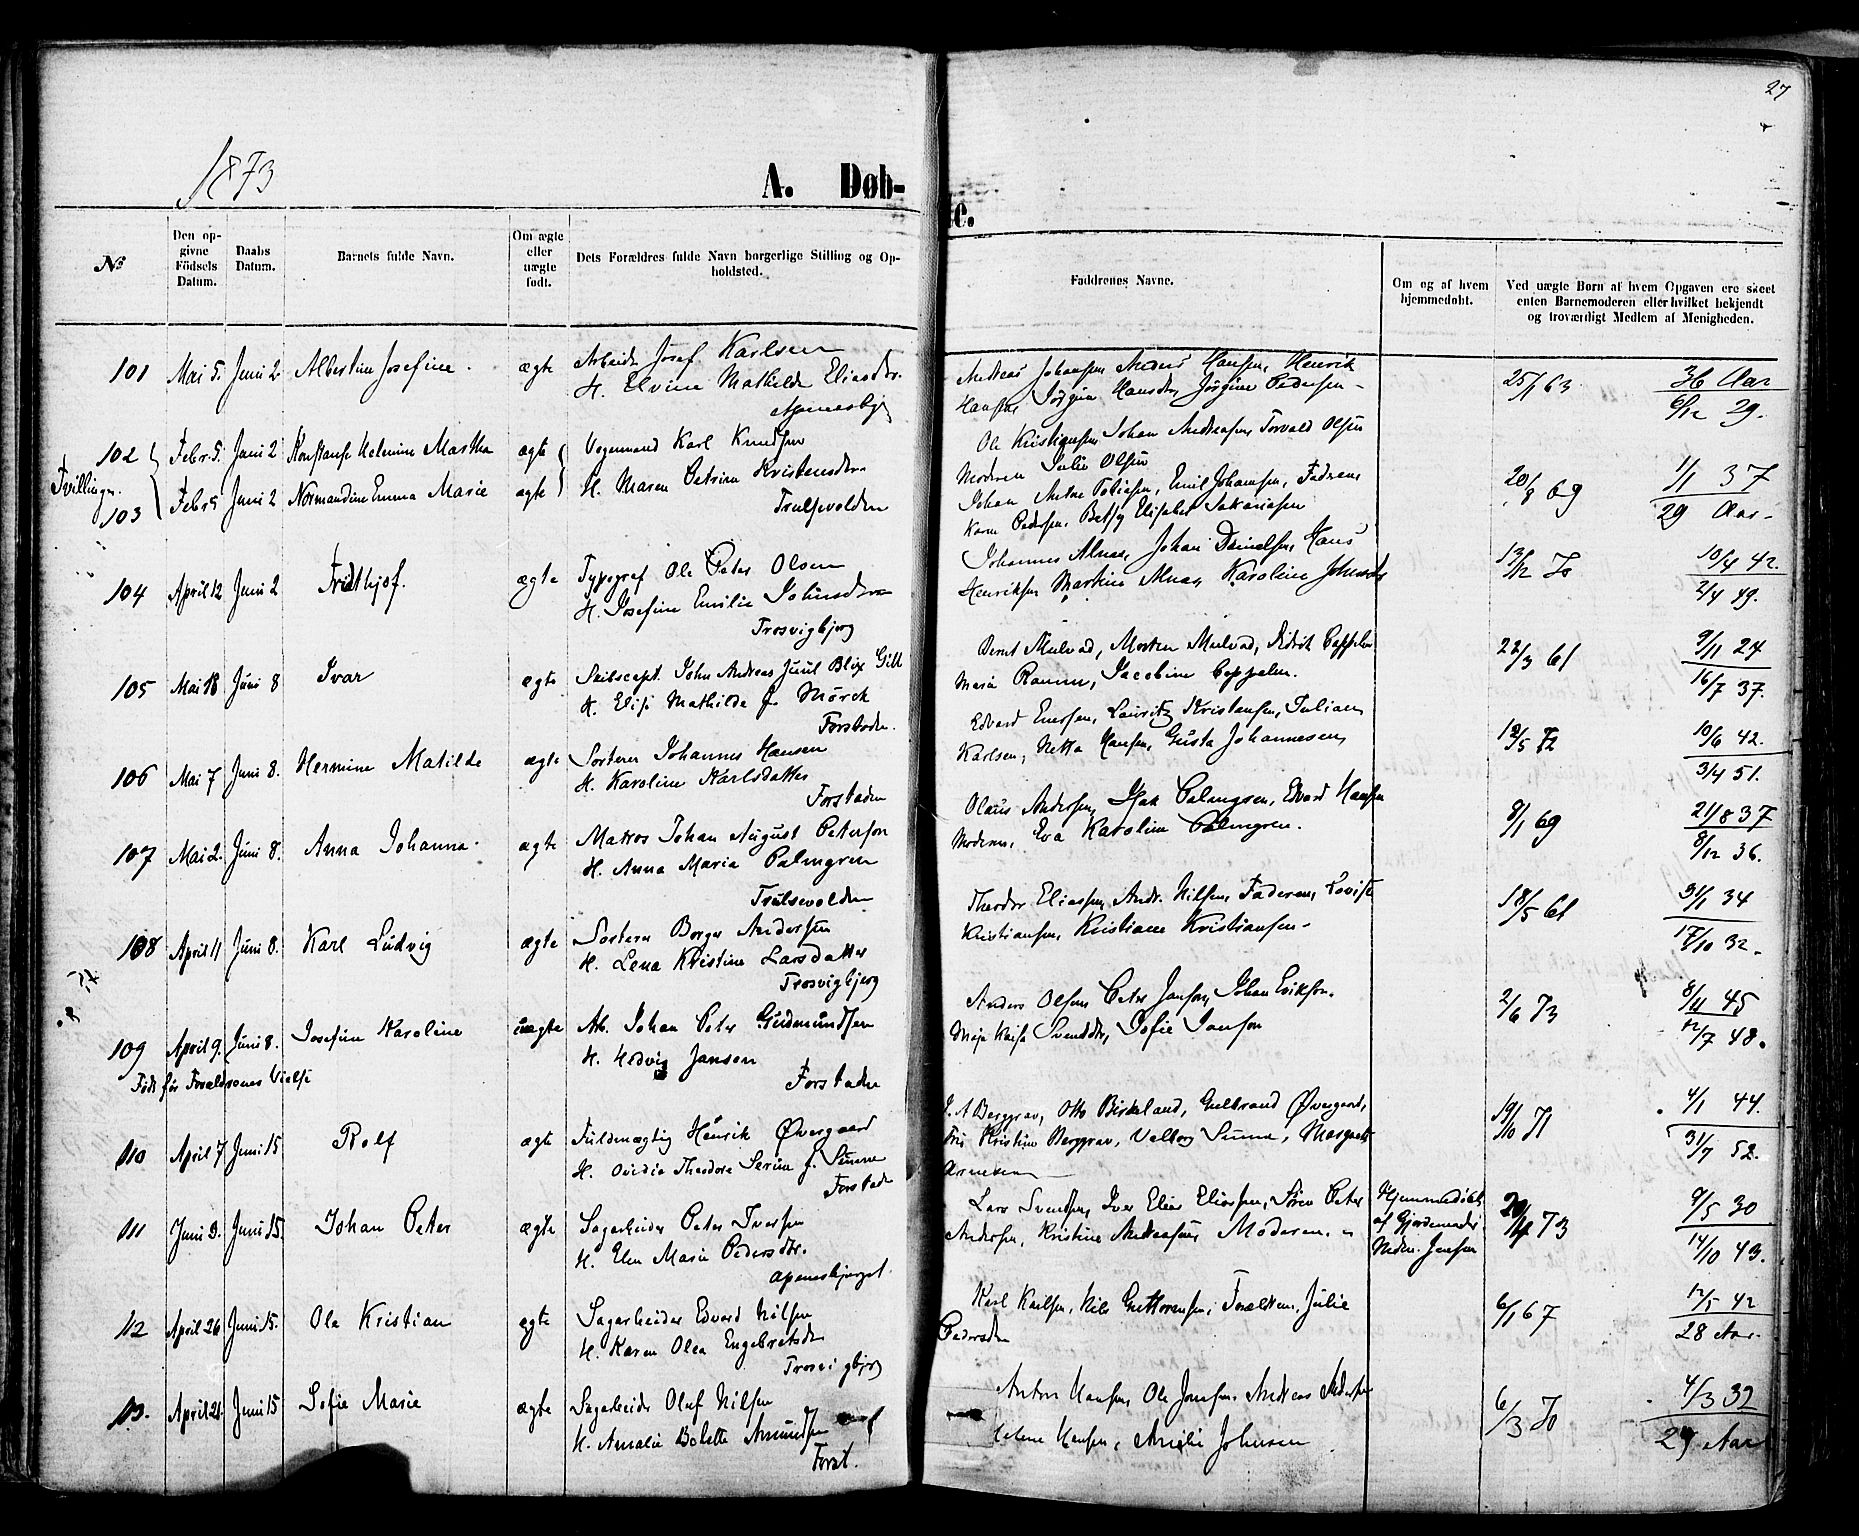 27
1873
A. Døb-
te.
№
Den op-
givne
Fødsels
Datum.
Daabs
Datum.
Barnets fulde Navn.
Om ægte
eller
uægte
født.
Dets Forældres fulde Navn borgerlige Stilling og Op-
holdsted.
Faddrenes Navne.
Om og af hvem
hjemmedøbt.
Ved uægte Børn af hvem Opgaven ere skeet
enten Barnemoderen eller hvilket bekjendt
og troværdigt Medlem af Menigheden.
101 Mai 5. Juni 2. Albertine Josefine. ægte Arbeider Josef Karlsen
H. Elvine Mathilde Eliasdtr.
Andreas Johansen, Anders Hansen, Henrik
Hansen, Jørgine Hansdtr, Jørgine Pedersen
25/1 63 36 Aar
6/12 29.
102 Febr. 5. Juni 2 Konstanse Helmine Martha ægte Vognmand Karl Knudsen
Tvillinger.
103 Febr 5 Juni 2 Normandine Emma Marie ægte H. Maren Petrine Kristensdtr
Trulsevolden
Ole Kristiansen, Johan Andreasen, Torvald Olsen
Moderen Julie Olsen
Johan Anton Tobiesen, Emil Johansen, Faderen
Karen Pedersen, Betsy Elisabet Sakariasen
20/8 69 1/1 37
29 Aar
104 April 12 Juni 2 Fridthjof. ægte Typograf Ole Peter Olsen
H. Josefine Emilie Johnsdtr
Trosvigbjerg
Johannes Alnæs, Johan Danielsen, Hans
Henriksen, Martine Alnæs, Karoline Johnsdtr
13/12 70 10/4 42.
2/4 49.
105 Mai 18 Juni 8 Ivar ægte Skibscapt. John Andreas Juul Blix Gill
H. Elise Mathilde f. Mörck
Forstaden.
Bernt Mulvad, Morten Mulvad, Didrik Cappelen
Maria Ramm, Jacobine Cappelen.
22/3 61 9/1 24
16/7 37.
106 Mai 7 Juni 8. Hermine Matilde ægte Sorterer Johannes Hansen
H. Karoline Karlsdatter
Forstaden
Edvard Enersen, Lauritz Kristiansen, Julian
Karlsen, Netta Hansen, Gusta Johannesen,
12/5 72 10/6 42.
3/4 51.
107 Mai 2. Juni 8. Anna Johanna. ægte Matros Johan August Peterson
H. Anna Maria Palmgren
Trulsevolden
Olaus Andersen, Isak Palmgren, Edvard Hansen
Moderen, Eva Karolina Palmgren.
8/1 69 21/8 37
8/12 36.
108 April 11 Juni 8. Karl Ludvig ægte Sorterer Borger Andersen
H. Lena Kristine Larsdatter
Trosvigbjerg
Theodor Eliassen, Andr. Nilsen, Faderen, Lovise
Kristiansen, Kristiane Kristiansen
18/5 61 31/1 34
17/10 32.
109 April 9. Juni 8. Josefine Karoline uægte Arb. Johan Peter Gudmundsen
Født før Forældrenes Vielse
H. Hedvig Janson
Forstaden
Anders Olsen, Peter Janson, Johan Erikson.
Maja Kaisa Svendsdtr, Sofie Janson
2/6 73 8/11 45
12/7 48.
110 April 7 Juni 15 Rolf ægte Fuldmægtig Henrik Øvergaard
H. Ovidia Theodora Serine f. Sunne
Forstaden
J. A Berggrav, Otto Birkeland, Gulbrand Øvergaard,
Frk Kristine Berggrav, Valborg Sunne, Margrete
Arnesen
19/10 71 4/1 44.
31/7 52.
111 Juni 3. Juni 15. Johan Peter ægte Sagarbeider Peter Iversen
H. Elen Marie Pedersdtr.
Apenesbjerget.
Lars Svendsen, Iver Elias Eliassen, Søren Peter
Andersen, Kristine Andreasen, Moderen.
Hjemmedøbt
af Gjordemoder
Jensen
73 9/5 30
14/10 43.
112 April 26 Juni 15. Ole Kristian ægte Sagarbeider Edvard Nilsen
H. Karen Olea Engebretsdtr
Trosvigbjerg
Karl Karlsen, Nils Guttormsen, Forældrene, Julie
Pedersdtr
6/1 67 12/5 42
28 Aar.
113. April 21. Juni 15 Sofie Marie ægte Sagarbeider Oluf Nilsen
H. Amalie Bolette Amundsen
Forst.
Anton Hansen, Ole Jensen, Andreas Andersen
Helene Hansen, Amalie Johnsen
6/3 70 4/3 32
29 Aar